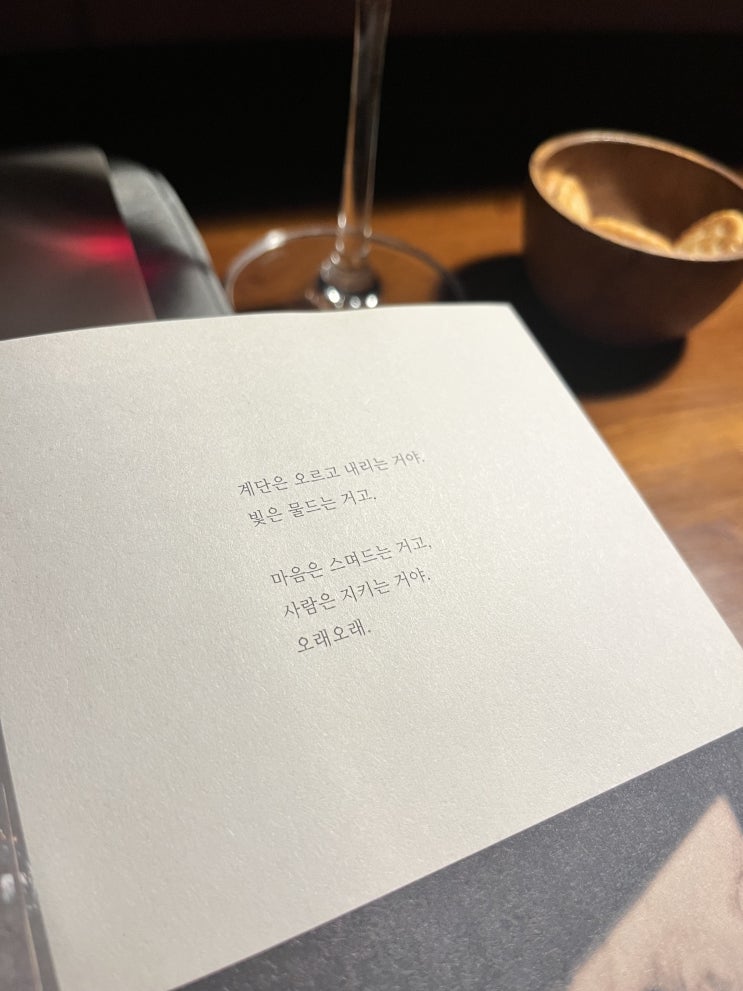 계단은 오르고 내리는 거야.
빛은 물드는 거고.
마음은 스며드는 거고,
사람은 지키는 거야.
오래오래.